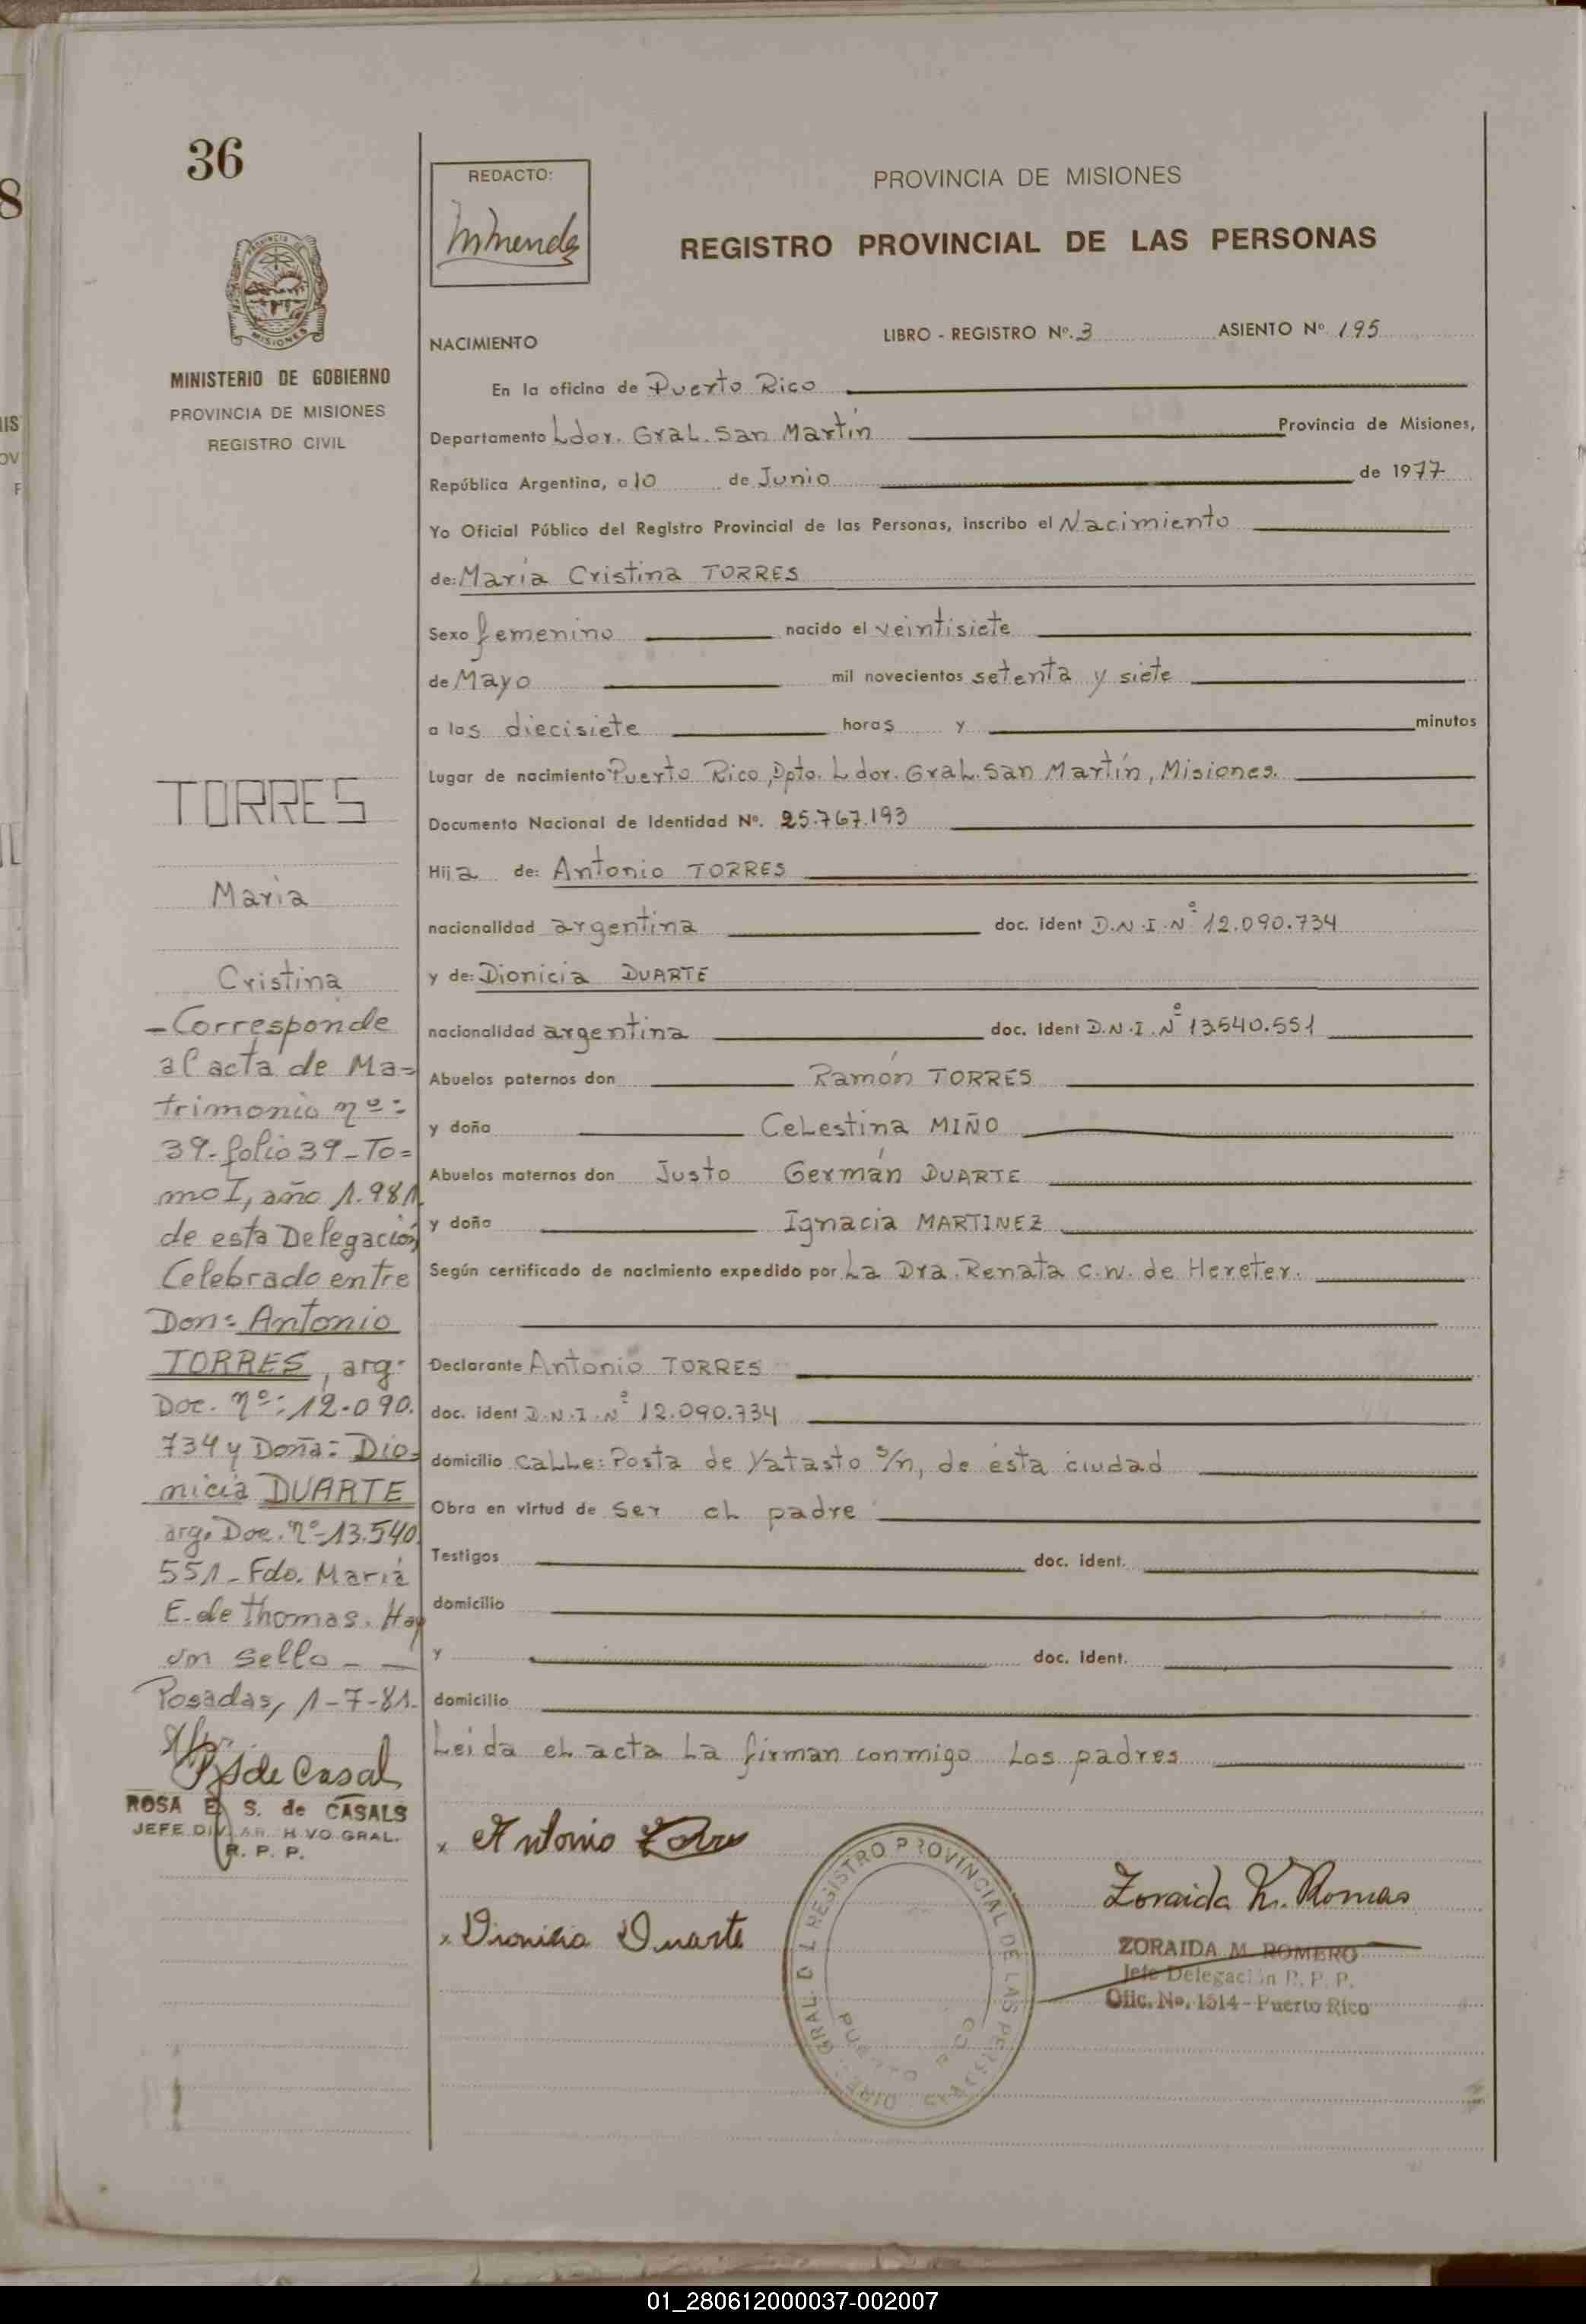 36
REDACTO:
PROVINCIA DE MISIONES
REGISTRO PROVINCIAL DE LAS PERSONAS
MINISTERIO DE GOBIERNO
PROVINCIA DE MISIONES
REGISTRO CIVIL
NACIMIENTO
LIBRO - REGISTRO Nº. 3 ASIENTO Nº 195
En la oficina de Puerto Rico
Departamento Ldor. Gral. San Martín Provincia de Misiones,
República Argentina, a 10 de Junio de 1977
Yo Oficial Público del Registro Provincial de las Personas, inscribo el Nacimiento
de: María Cristina TORRES
Sexo femenino nacido el veintisiete
de Mayo mil novecientos setenta y siete
a las diecisiete horas y minutos
Lugar de nacimiento Puerto Rico, Dpto. Ldor. Gral. San Martín, Misiones.
Documento Nacional de Identidad Nº. 25.767.193
Hija de: Antonio TORRES
nacionalidad argentina doc. ident D.N.I. Nº 12.090.734
y de: Dionicia DUARTE
nacionalidad argentina doc. ident D.N.I. Nº 13.540.551
Abuelos paternos don Ramón TORRES
y doña Celestina MIÑO
Abuelos maternos don Justo Germán DUARTE
y doña Ignacia MARTINEZ
Según certificado de nacimiento expedido por La Dra. Renata C.W. de Hereter.
Declarante Antonio TORRES
doc. ident D.N.I. Nº 12.090.734
domicilio calle: Posta de Yatasto s/n, de ésta ciudad
Obra en virtud de ser el padre
Testigos doc. ident.
domicilio
y doc. ident.
domicilio
Leida el acta la firman conmigo los padres
x Antonio Torres
x Dionicia Duarte
ZORAIDA M. ROMERO
Jefe Delegación R. P. P.
Ofic. No. 1514 - Puerto Rico
TORRES
Maria
Cristina
- Corresponde
al acta de Ma=
trimonio nº:
39- folio 39 - To=
mo I, año 1.981
de esta Delegación
Celebrado entre
Don: Antonio
TORRES, arg.
Doc. nº: 12.090.
734 y Doña: Dio=
nicia DUARTE
arg. Doc. nº 13.540.
551 - Fdo. Maria
E. de Thomas. Hay
un sello - —
Posadas, 1-7-81.
ROSA E. S. de CASALS
JEFE DIV. ARCHIVO GRAL.
R. P. P.
01_280612000037-002007